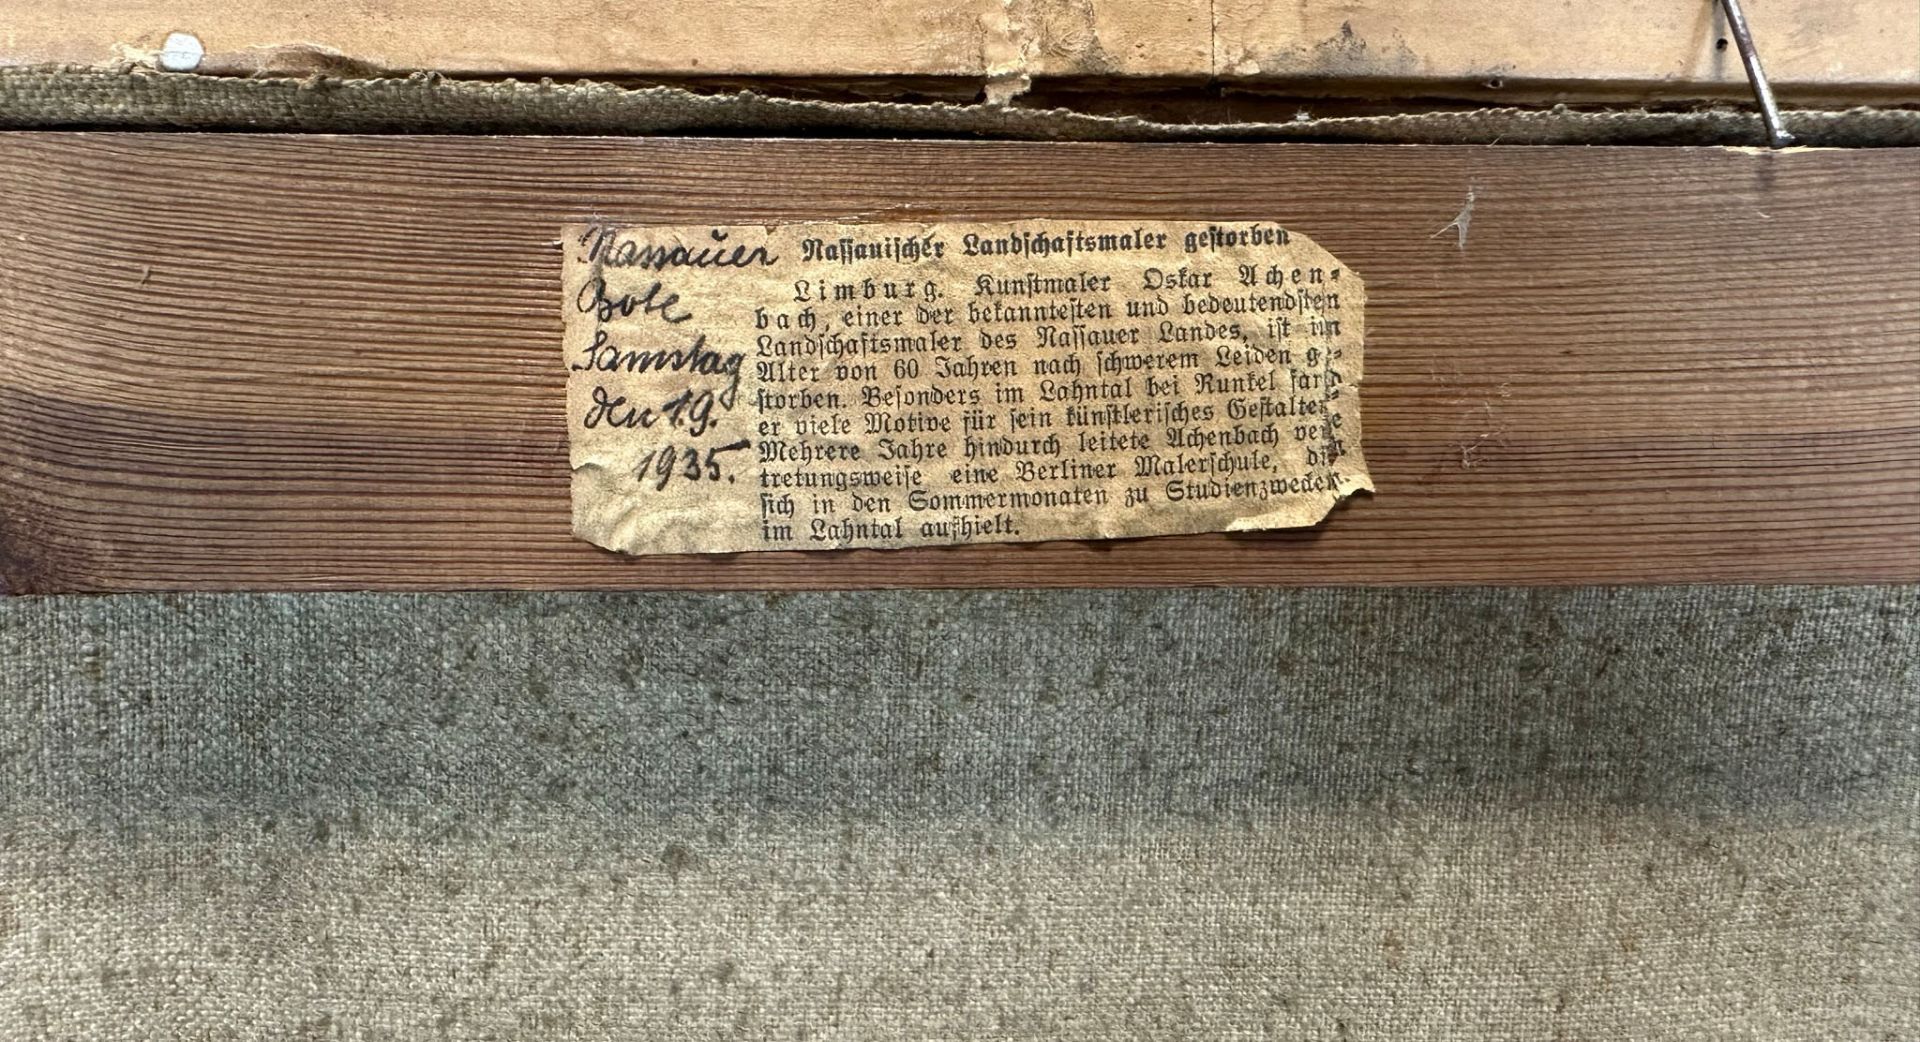 Nassauer
Bote
Samstag
den 1.9.
1935.
Nassauischer Landschaftsmaler gestorben
Limburg. Kunstmaler Oskar Achen-
bach, einer der bekanntesten und bedeutendsten
Landschaftsmaler des Nassauer Landes, ist im
Alter von 60 Jahren nach schwerem Leiden ge-
storben. Besonders im Lahntal bei Runkel fand
er viele Motive für sein künstlerisches Gestalten.
Mehrere Jahre hindurch leitete Achenbach ver-
tretungsweise eine Berliner Malerschule, die
sich in den Sommermonaten zu Studienzwecken
im Lahntal aufhielt.